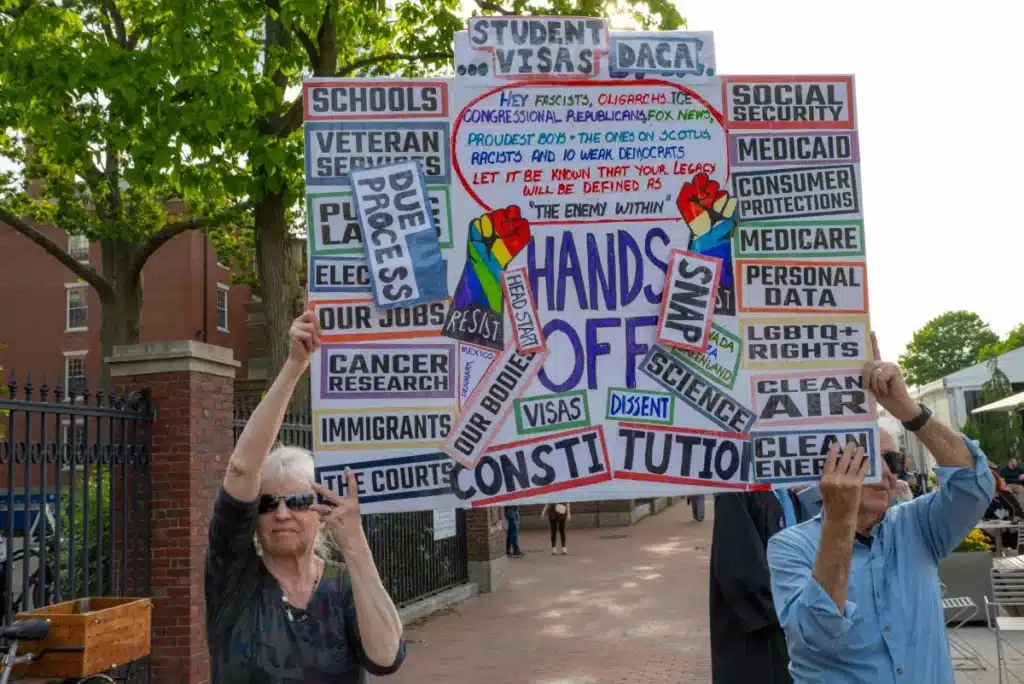 STUDENT
... VISAS
DACA
SCHOOLS
VETERAN
SERVICES
DUE
PROCESS
OUR JOBS
CANCER
RESEARCH
IMMIGRANTS
THE COURTS
HEY FASCISTS, OLIGARCHS, ICE
CONGRESSIONAL REPUBLICANS, FOX NEWS,
PROUDEST BOYS + THE ONES ON SCOTUS,
RACISTS AND 10 WEAK DEMOCRATS
LET IT BE KNOWN THAT YOUR LEGACY
WILL BE DEFINED AS
"THE ENEMY WITHIN"
HANDS
OFF
RESIST
HEAD START
MEXICO
DENMARK
OUR BODIES
SNAP
SCIENCE
VISAS
DISSENT
CONSTI
TUTION
SOCIAL
SECURITY
MEDICAID
CONSUMER
PROTECTIONS
MEDICARE
PERSONAL
DATA
LGBTQ+
RIGHTS
CLEAN
AIR
CLEAN